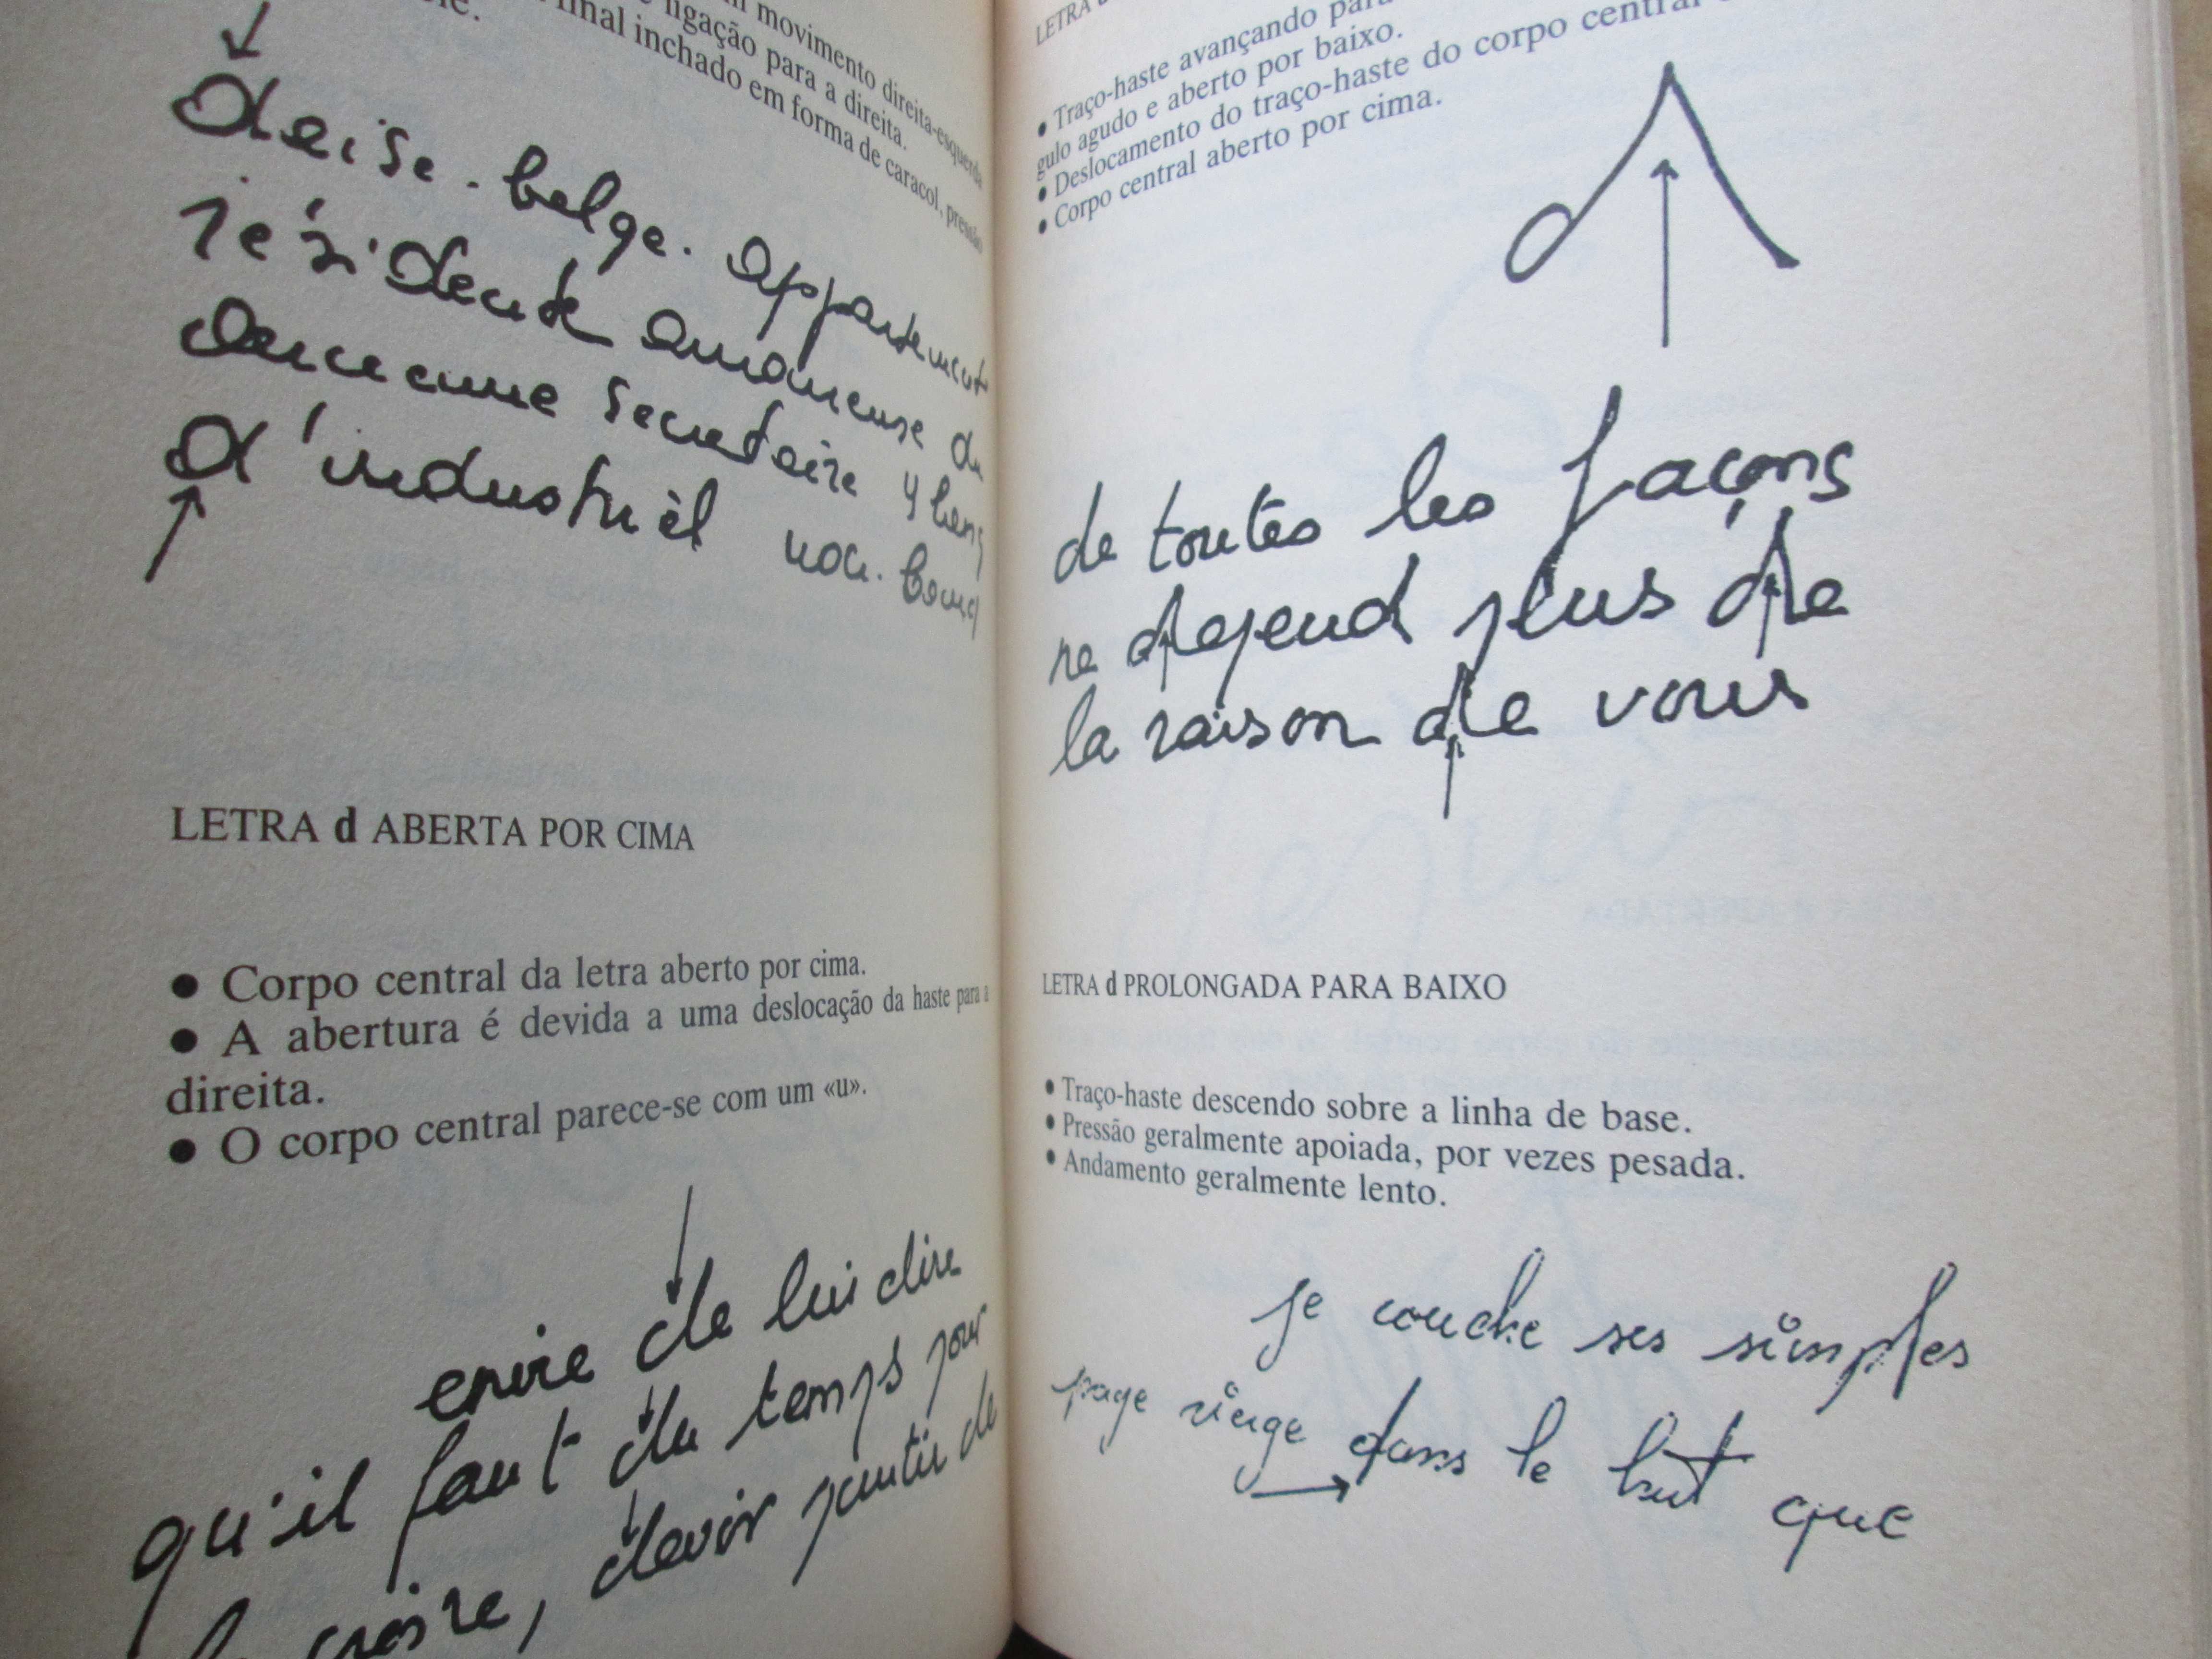 movimento direita-esquerda
ligação para a direita.
final inchado em forma de caracol, pressão
deise. belge. appartement
résidente amoureuse du
d'industriel
LETRA d ABERTA POR CIMA
● Corpo central da letra aberto por cima.
● A abertura é devida a uma deslocação da haste para a
direita.
● O corpo central parece-se com um «u».
envie de lui dire
qu'il faut du temps pour
croire, devoir partir de
LETRA d
● Traço-haste avançando para
gulo agudo e aberto por baixo.
● Deslocamento do traço-haste do corpo central
● Corpo central aberto por cima.
de toutes les façons
ne depend plus de
la raison de vous
LETRA d PROLONGADA PARA BAIXO
● Traço-haste descendo sobre a linha de base.
● Pressão geralmente apoiada, por vezes pesada.
● Andamento geralmente lento.
je couche ses simples
page vierge dans le but que